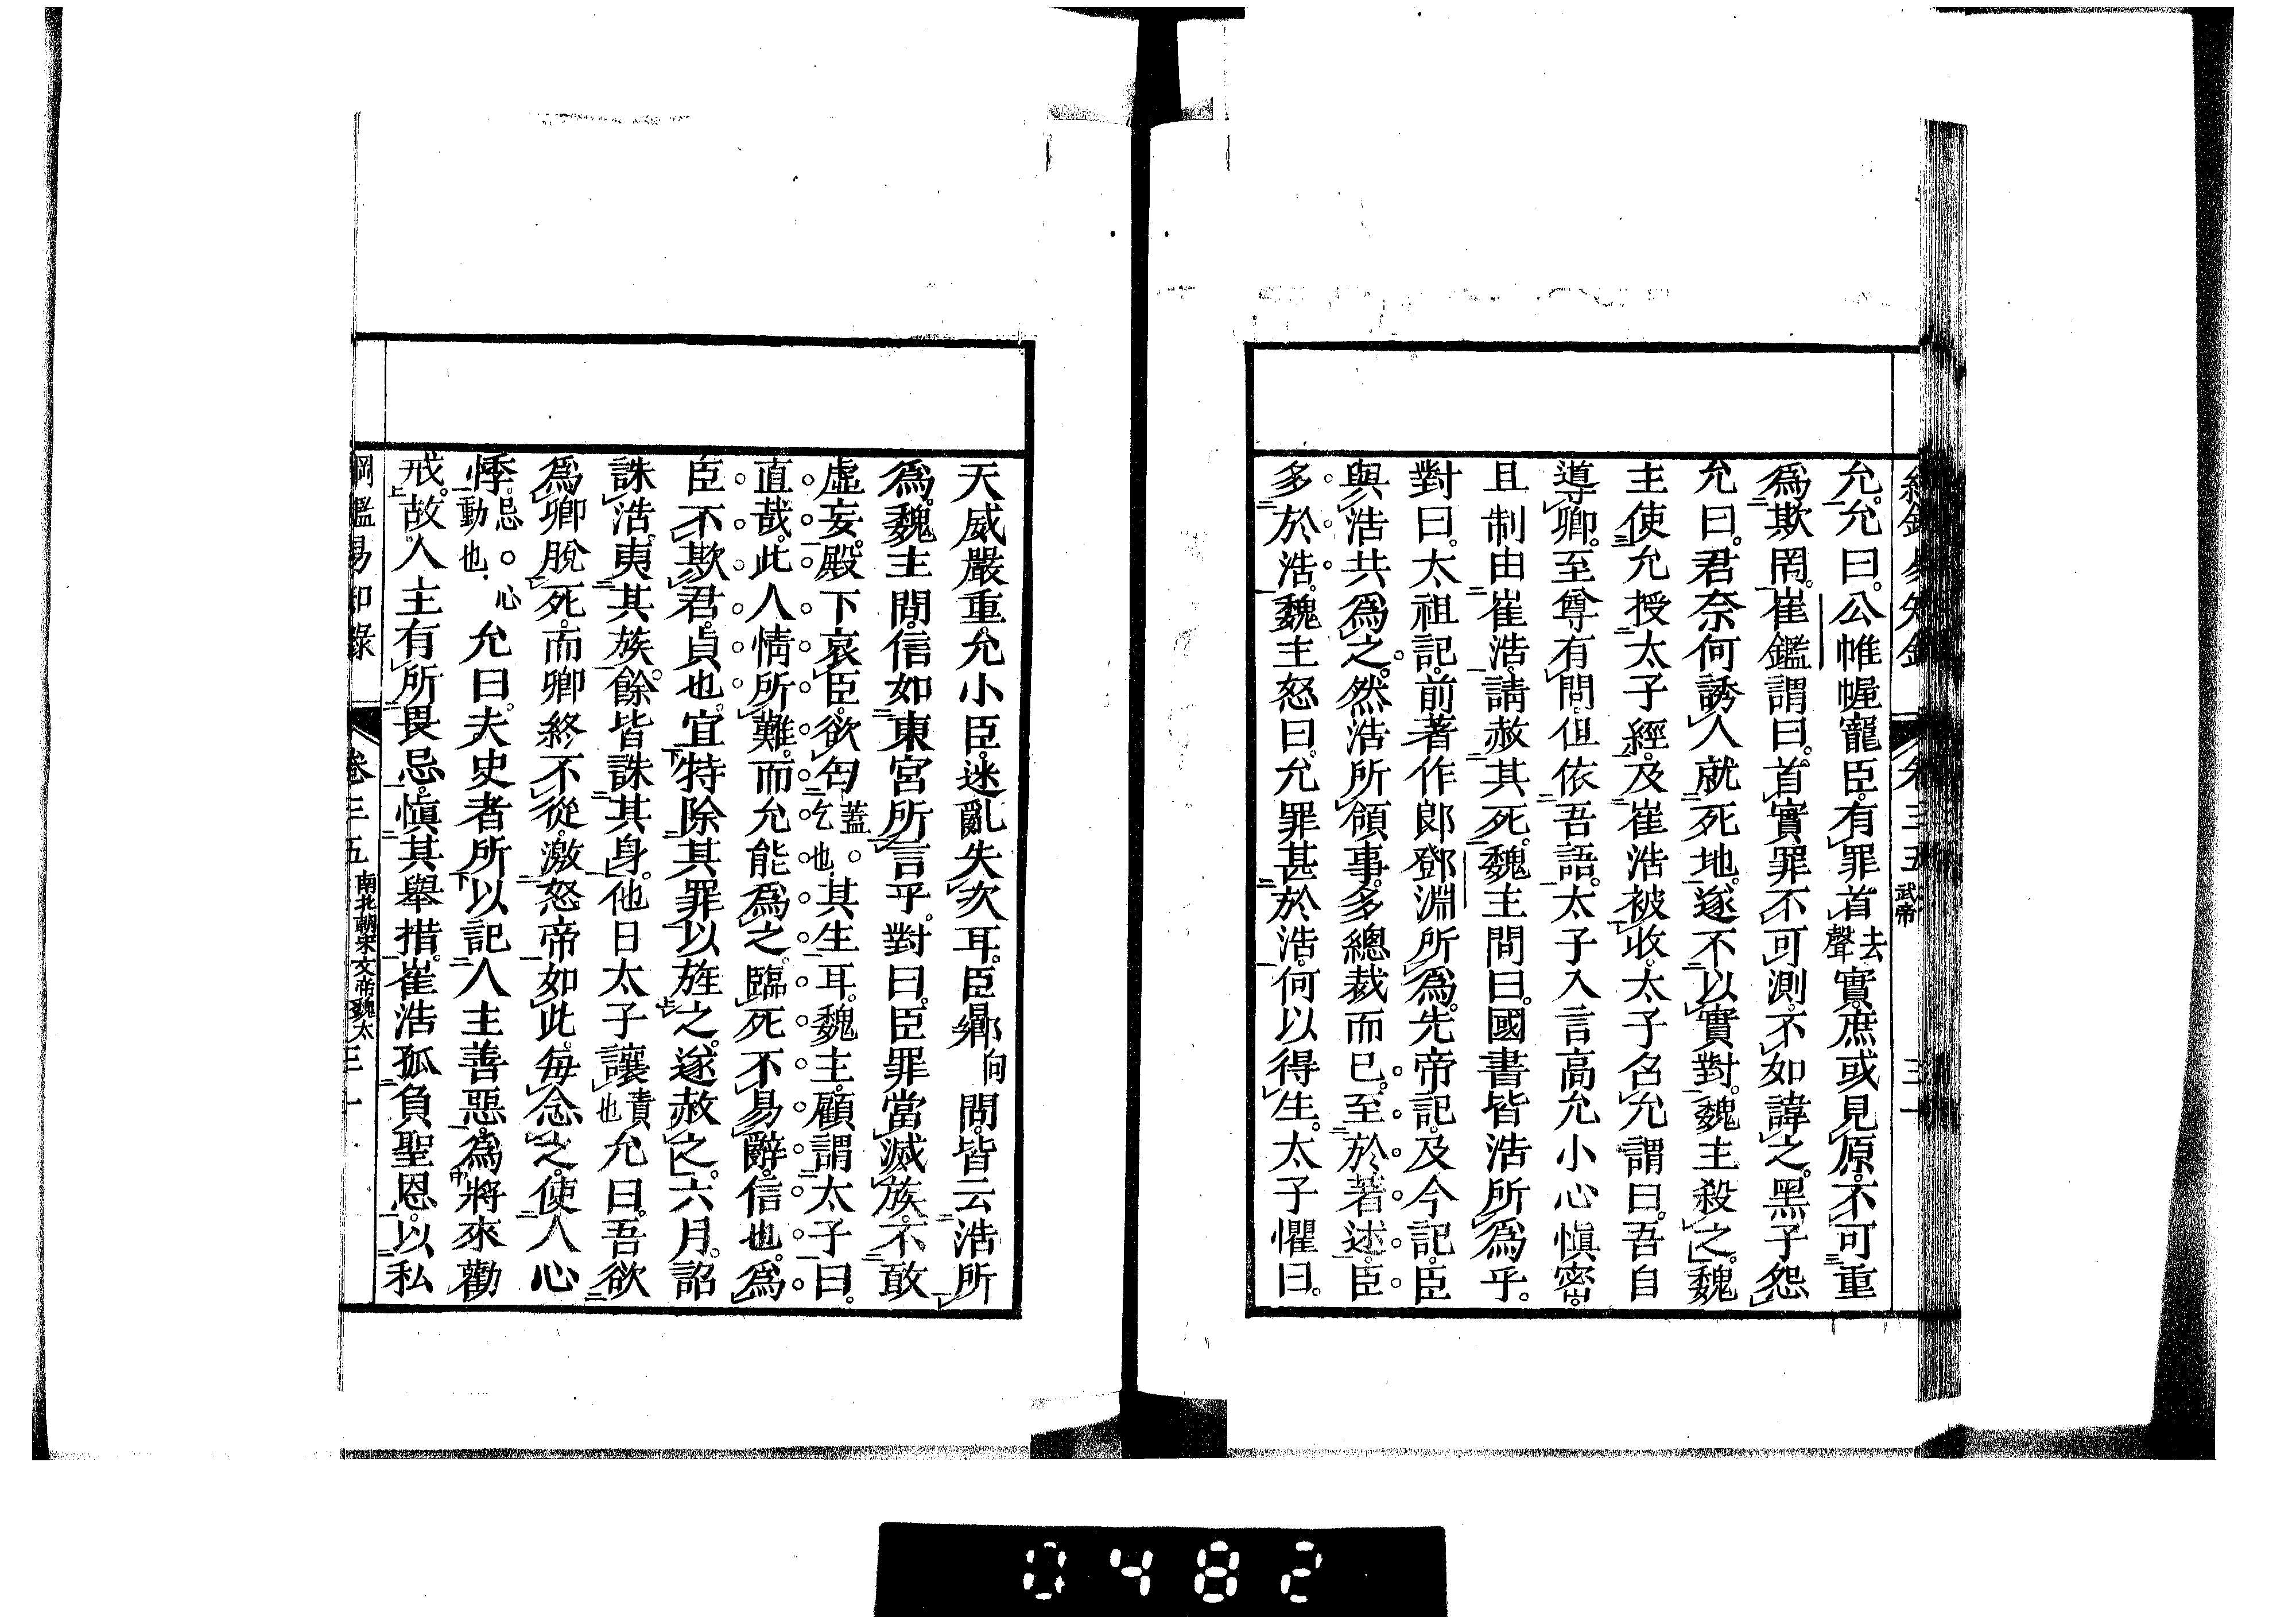 允。允曰。公帷幄寵臣。有罪首去聲實。庶或見原。不可重
爲欺罔。崔鑑謂曰。首實罪不可測。不如諱之。黑子怨
允曰。君奈何誘人就死地。遂不以實對。魏主殺之。魏
主使允授太子經。及崔浩被收。太子召允謂曰。吾自
導卿。至尊有問。但依吾語。太子入言高允小心愼密。
且制由崔浩。請赦其死。魏主問曰。國書皆浩所爲乎。
對曰。太祖記。前著作郎鄧淵所爲。先帝記。及今記。臣
與浩共爲之。然浩所領事多。總裁而已。至於著述。臣
多於浩。魏主怒曰。允罪甚於浩。何以得生。太子懼曰。
天威嚴重。允小臣。迷亂失次耳。臣曏向問。皆云浩所
爲。魏主問。信如東宮所言乎。對曰。臣罪當滅族。不敢
虛妄。殿下哀臣。欲匄蓋。乞也。其生耳。魏主顧謂太子曰。
直哉。此人情所難。而允能爲之。臨死不易辭。信也。爲
臣不欺君。貞也。宜特除其罪以旌之。遂赦之。六月。詔
誅浩。夷其族。餘皆誅其身。他日太子讓責也允曰。吾欲
爲卿脫死。而卿終不從。激怒帝如此。每念之。使人心
悸。忌。心動也。允曰。夫史者所以記人主善惡。爲將來勸
戒。故人主有所畏忌。愼其舉措。崔浩孤負聖恩。以私
綱鑑易知錄 卷三五 南北朝宋文帝魏太 三一
武帝
0482